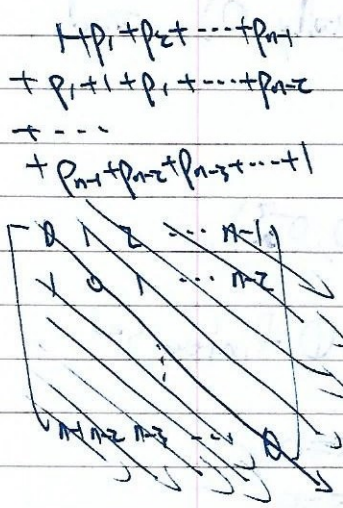 1+ρ₁+ρ₂+⋯+ρₙ₋₁
+ρ₁+1+ρ₁+⋯+ρₙ₋₂
+⋯
+ρₙ₋₁+ρₙ₋₂+ρₙ₋₃+⋯+1
0 1 2 ⋯ n-1
1 0 1 ⋯ n-2
⋮
n-1 n-2 n-3 ⋯ 0